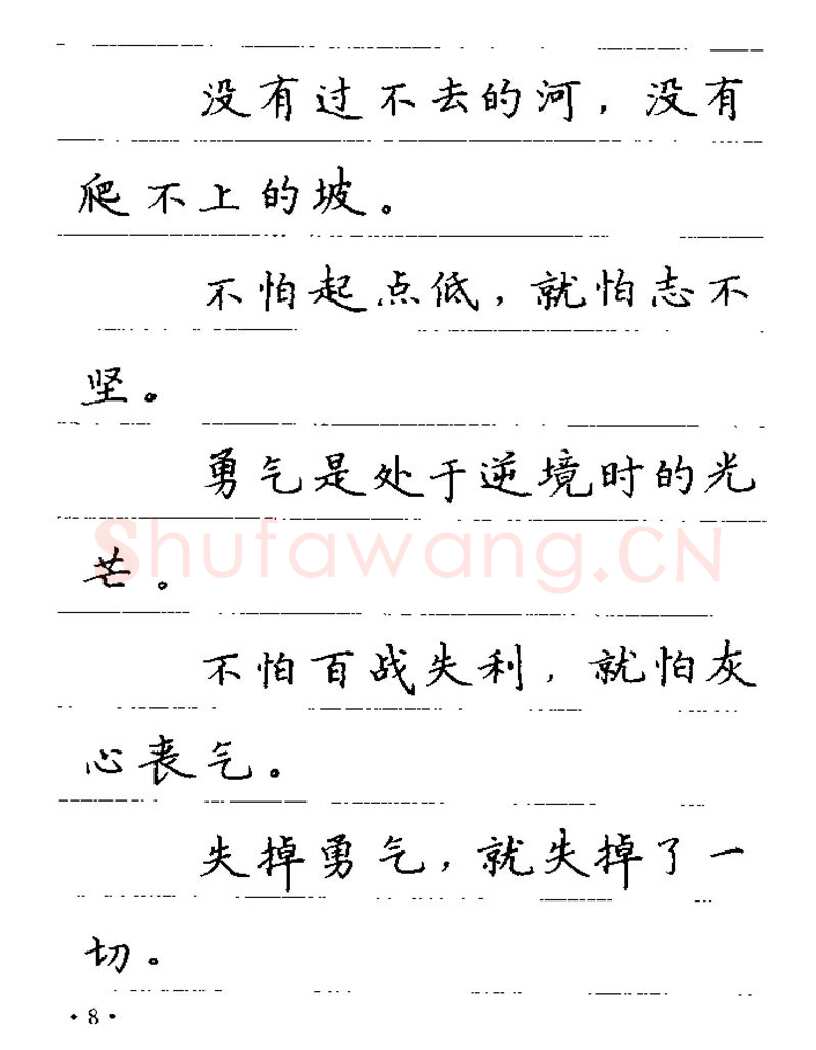 没有过不去的河，没有
爬不上的坡。
不怕起点低，就怕志不
坚。
勇气是处于逆境时的光
Shufawang.CN
芒。
不怕百战失利，就怕灰
心丧气。
失掉勇气，就失掉了一
切。
·8·